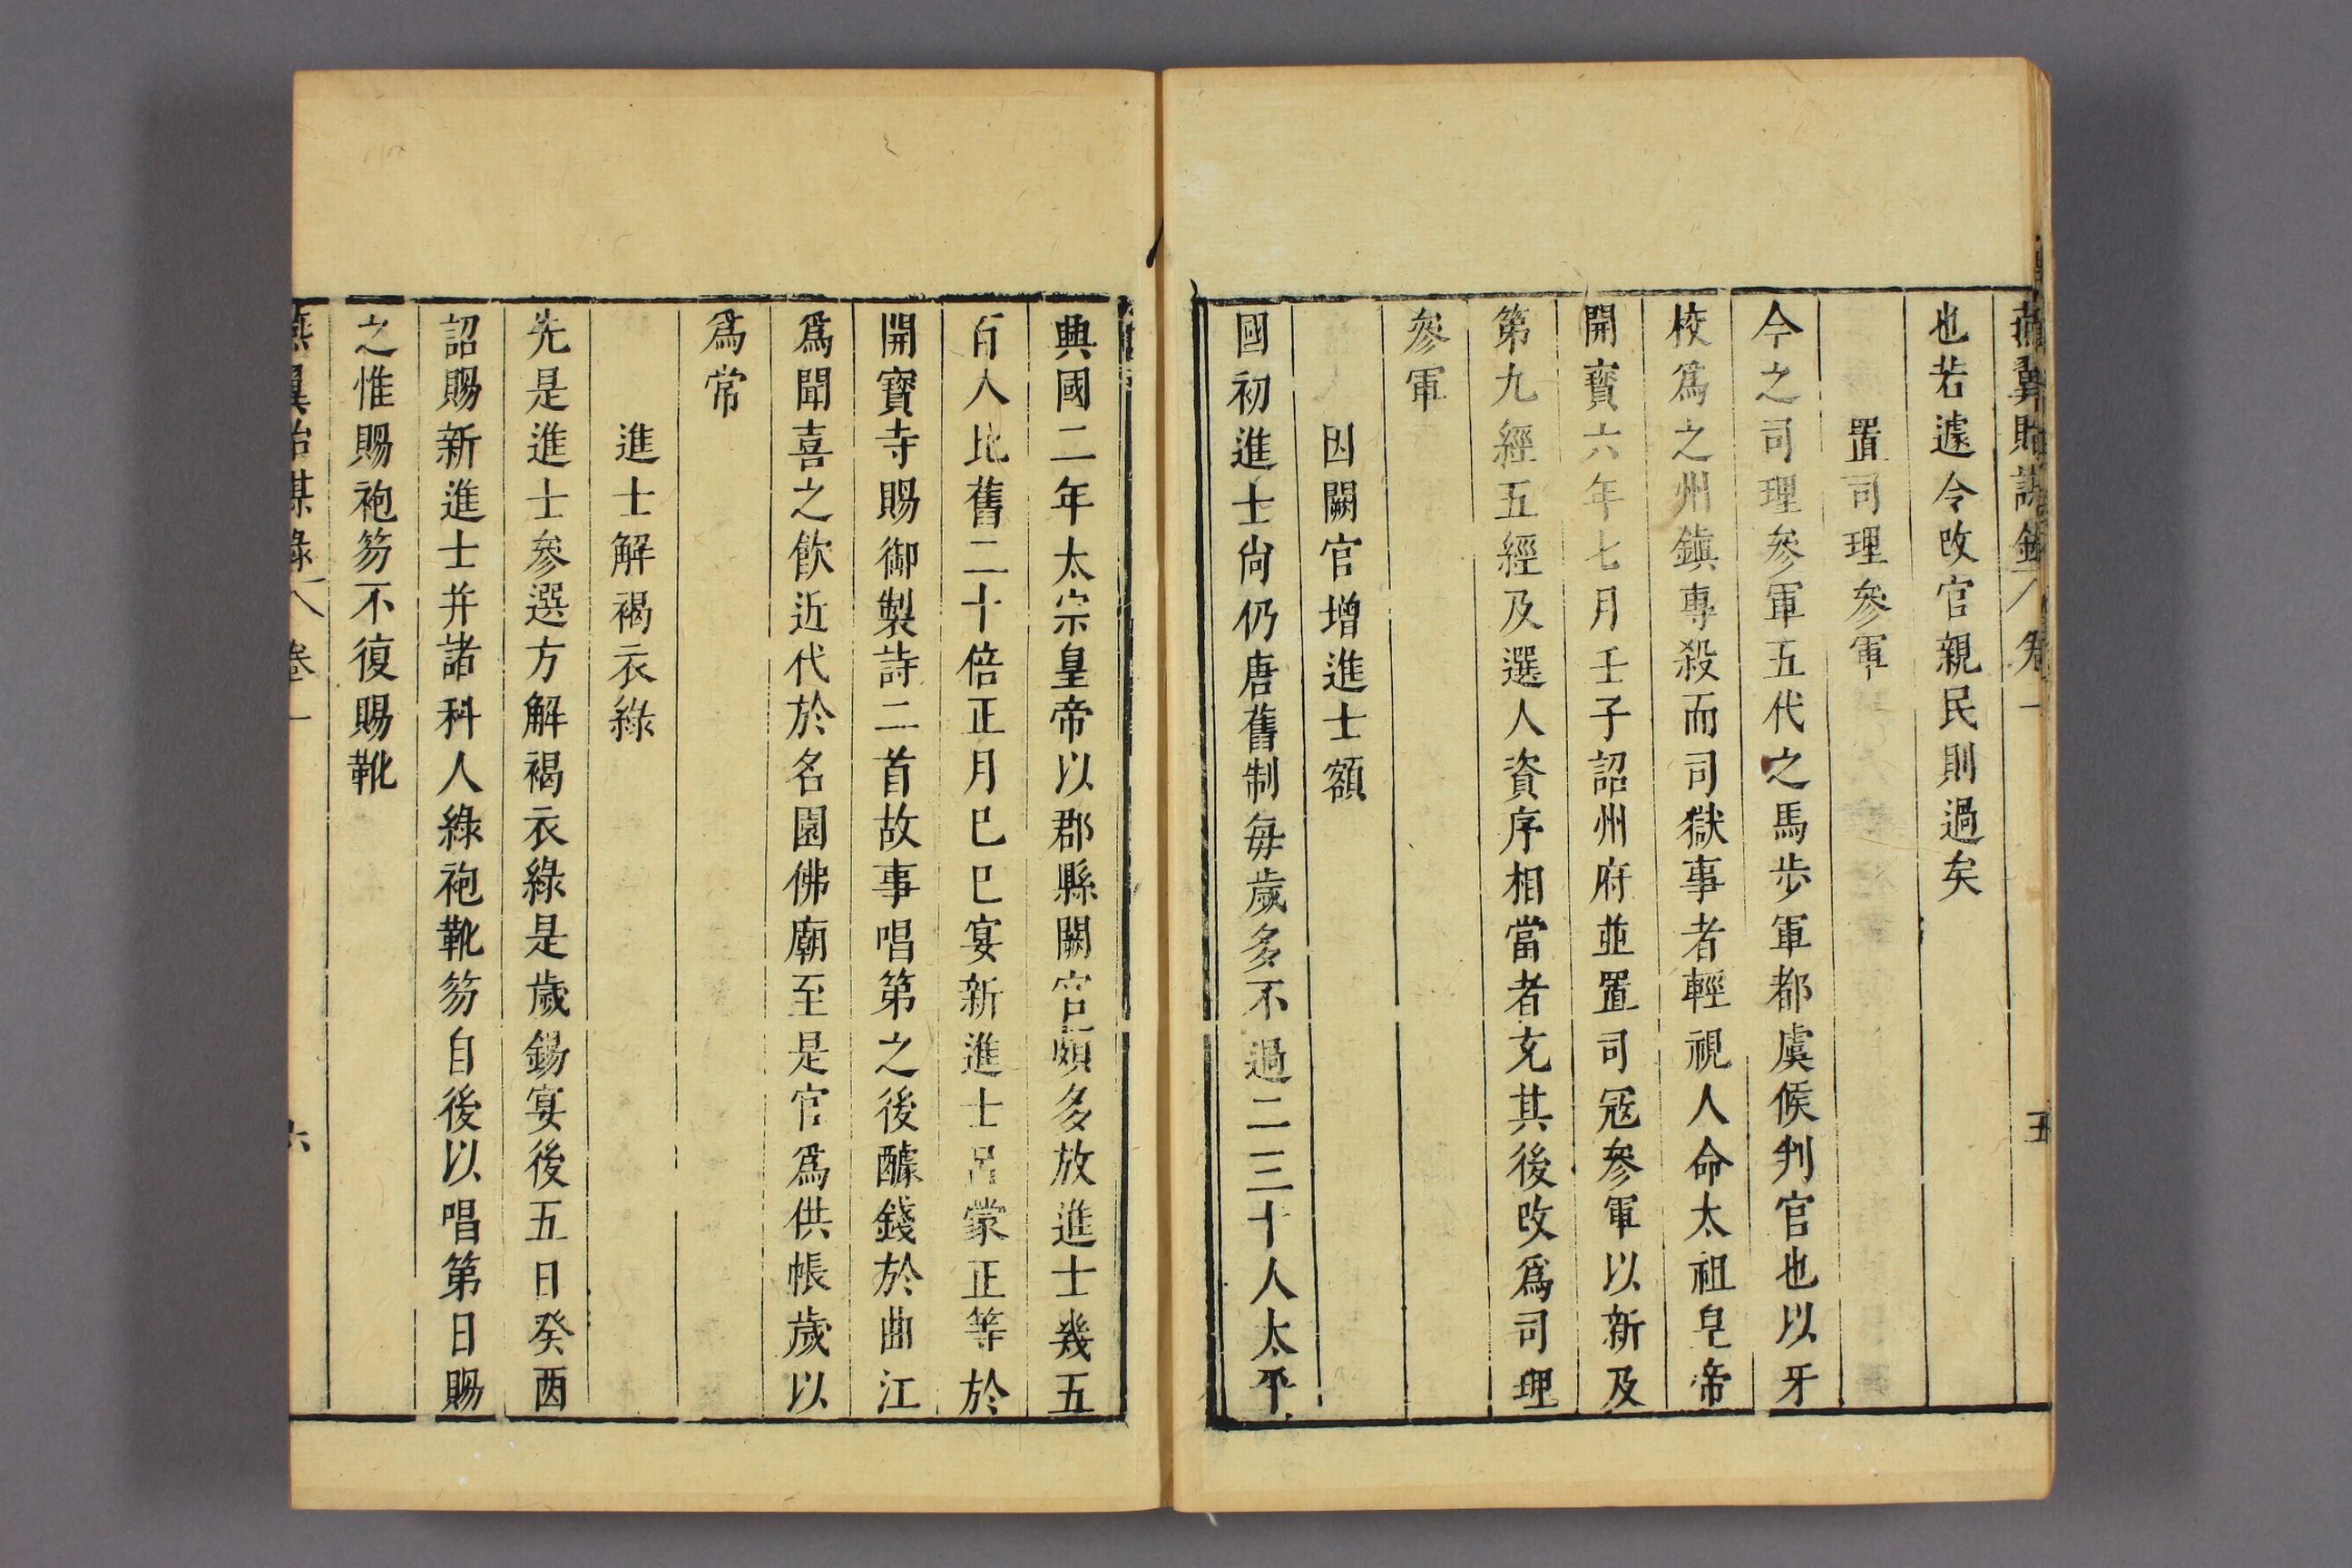 燕翼貽謀錄 卷一 五
也若遽令改官親民則過矣
置司理參軍
今之司理參軍五代之馬歩軍都虞候判官也以牙
校爲之州鎭專殺而司獄事者輕視人命太祖皇帝
開寳六年七月壬子詔州府並置司寇參軍以新及
第九經五經及選人資序相當者充其後改爲司理
參軍
因闕官增進士額
國初進士尙仍唐舊制每歲多不過二三十人太平
興國二年太宗皇帝以郡縣闕官頗多放進士幾五
百人比舊二十倍正月己巳宴新進士呂蒙正等於
開寳寺賜御製詩二首故事唱第之後醵錢於曲江
爲聞喜之飮近代於名園佛廟至是官爲供帳歲以
爲常
進士解褐衣綠
先是進士參選方解褐衣綠是歲錫宴後五日癸酉
詔賜新進士并諸科人綠袍靴笏自後以唱第日賜
之惟賜袍笏不復賜靴
燕翼貽謀錄 卷一 六